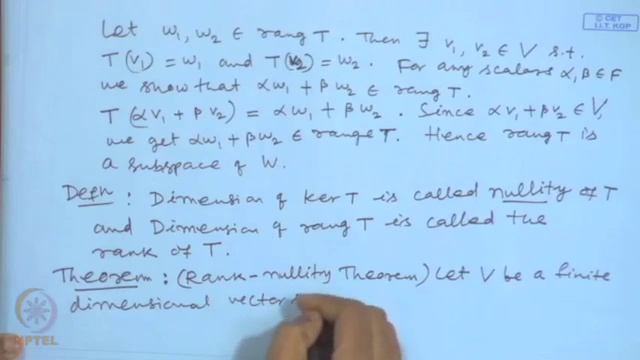 © CET
I.I.T. KGP
Let w₁, w₂ ∈ rang T. Then ∃ v₁, v₂ ∈ V s.t.
T(v₁) = w₁ and T(v₂) = w₂. For any scalars α, β ∈ F
we show that αw₁ + βw₂ ∈ rang T.
T(αv₁ + βv₂) = αw₁ + βw₂. Since αv₁ + βv₂ ∈ V,
we get αw₁ + βw₂ ∈ range T. Hence rang T is
a subspace of W.
Defn : Dimension of ker T is called nullity of T
and Dimension of rang T is called the
rank of T.
Theorem : (Rank-nullity Theorem) Let V be a finite
dimensional vector
NPTEL